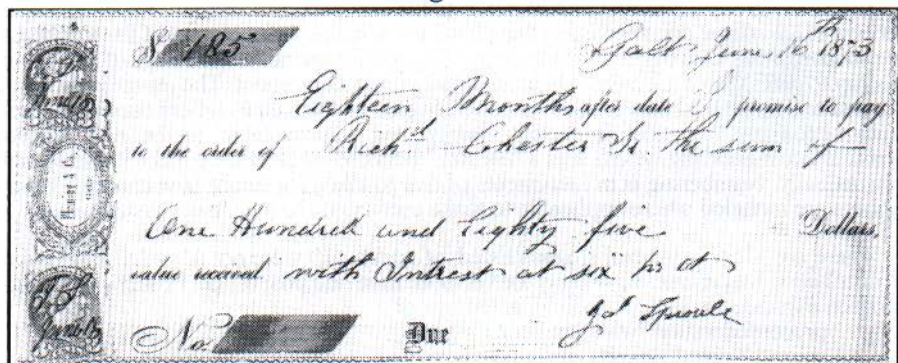 $ 185 Galt June 16th 1873
Eighteen Months after date I promise to pay
to the order of Richd Chester Sr. the sum of
One Hundred and Eighty five Dollars,
value received with Intrest at six pr ct
Sproule
No. Due